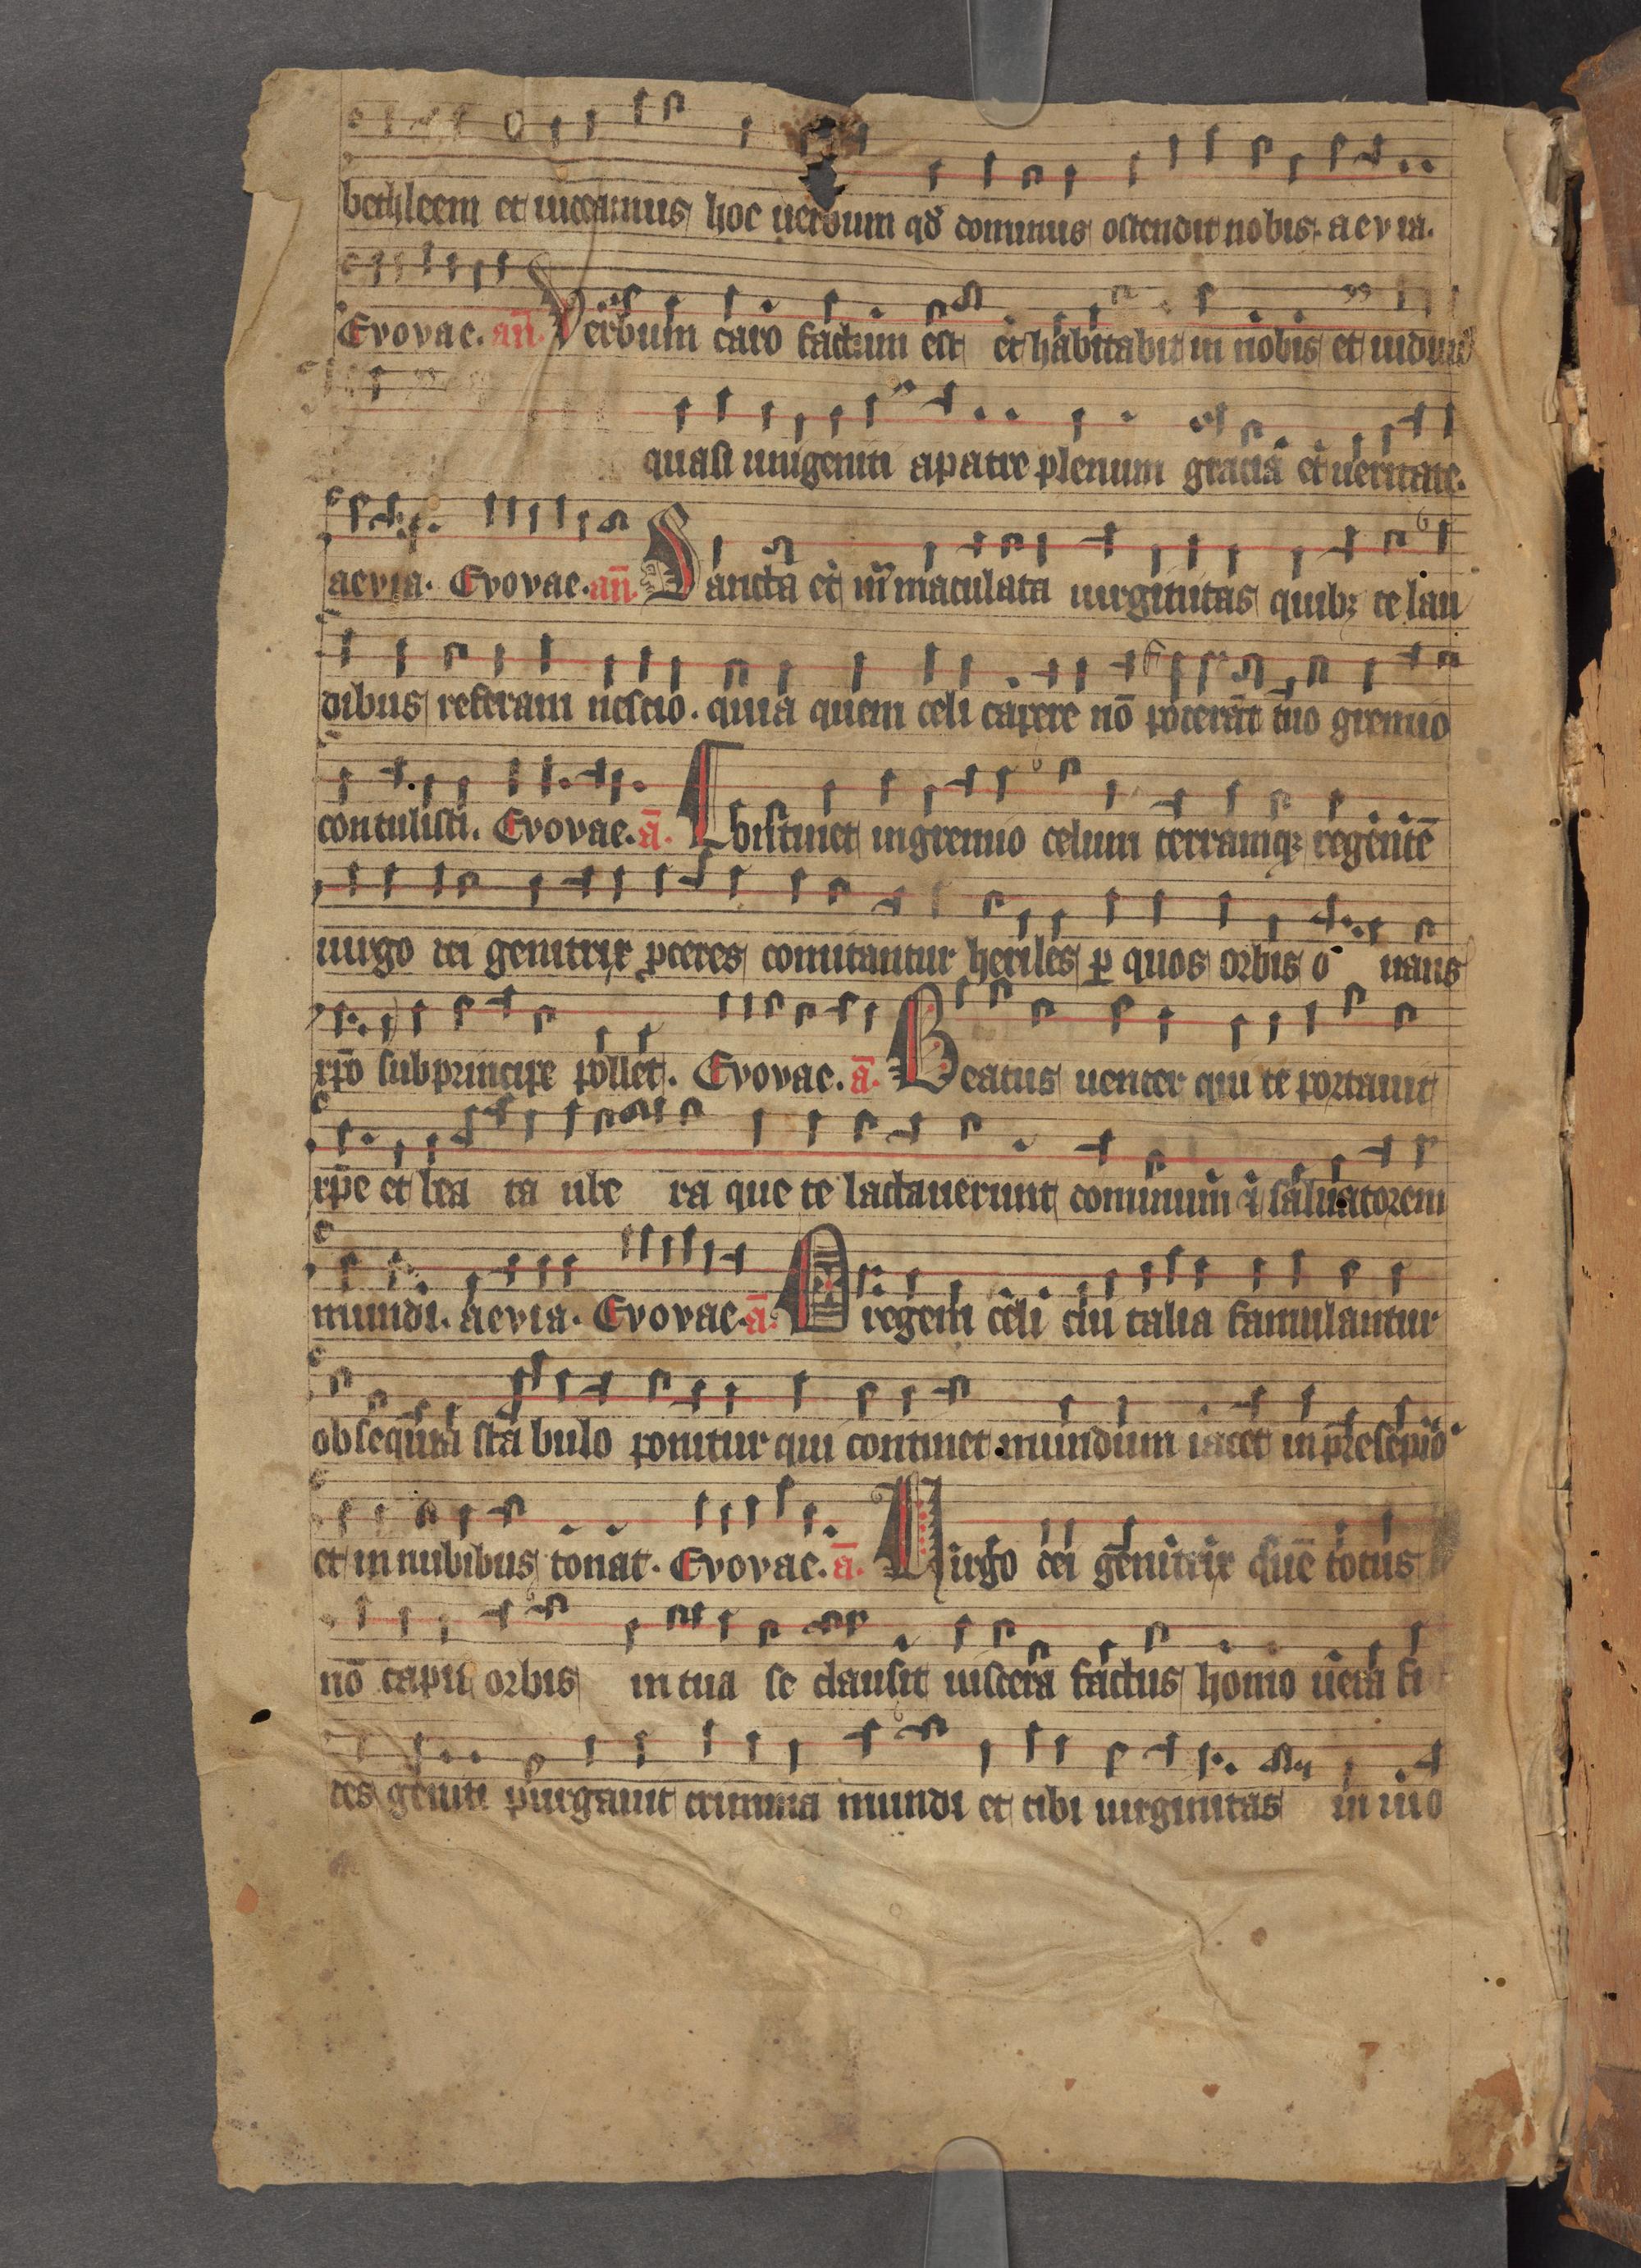 bethleem et uideamus hoc uerbum qđ dominus ostendit nobis. aevia.
Evovae. an̄. Verbum caro factum est et habitabit in nobis et uidim
quasi unigeniti apatre plenum gracia et ueritate.
aevia. Evovae. an̄. Sancta et inmaculata uirginitas quibꝫ te lau
dibus referam nescio. quia quem celi capere nō poterāt tuo gremio
contulisti. Evovae. ā. bistinet ingremio celum terramqꝫ regentē
uirgo dei genitrix ꝓceres comitantur heriles ꝑ quos orbis o uans
xp̄o subprincipe pollet. Evovae. ā. Beatus uenter qui te portauit
xp̄e et bea ta ube ra que te lactauerunt dominum ⁊ saluatorem
mundi. aevia. Evovae. ā. O regem celi cui talia famulantur
obsequia sta bulo ponitur qui continet mundum iacet in presepio
et in nubibus tonat. Evovae. ā. Virgo dei genitrix quē totus
nō capit orbis in tua se clausit uiscera factus homo uera fi
des geniti purgauit crimina mundi et tibi uirginitas in uio